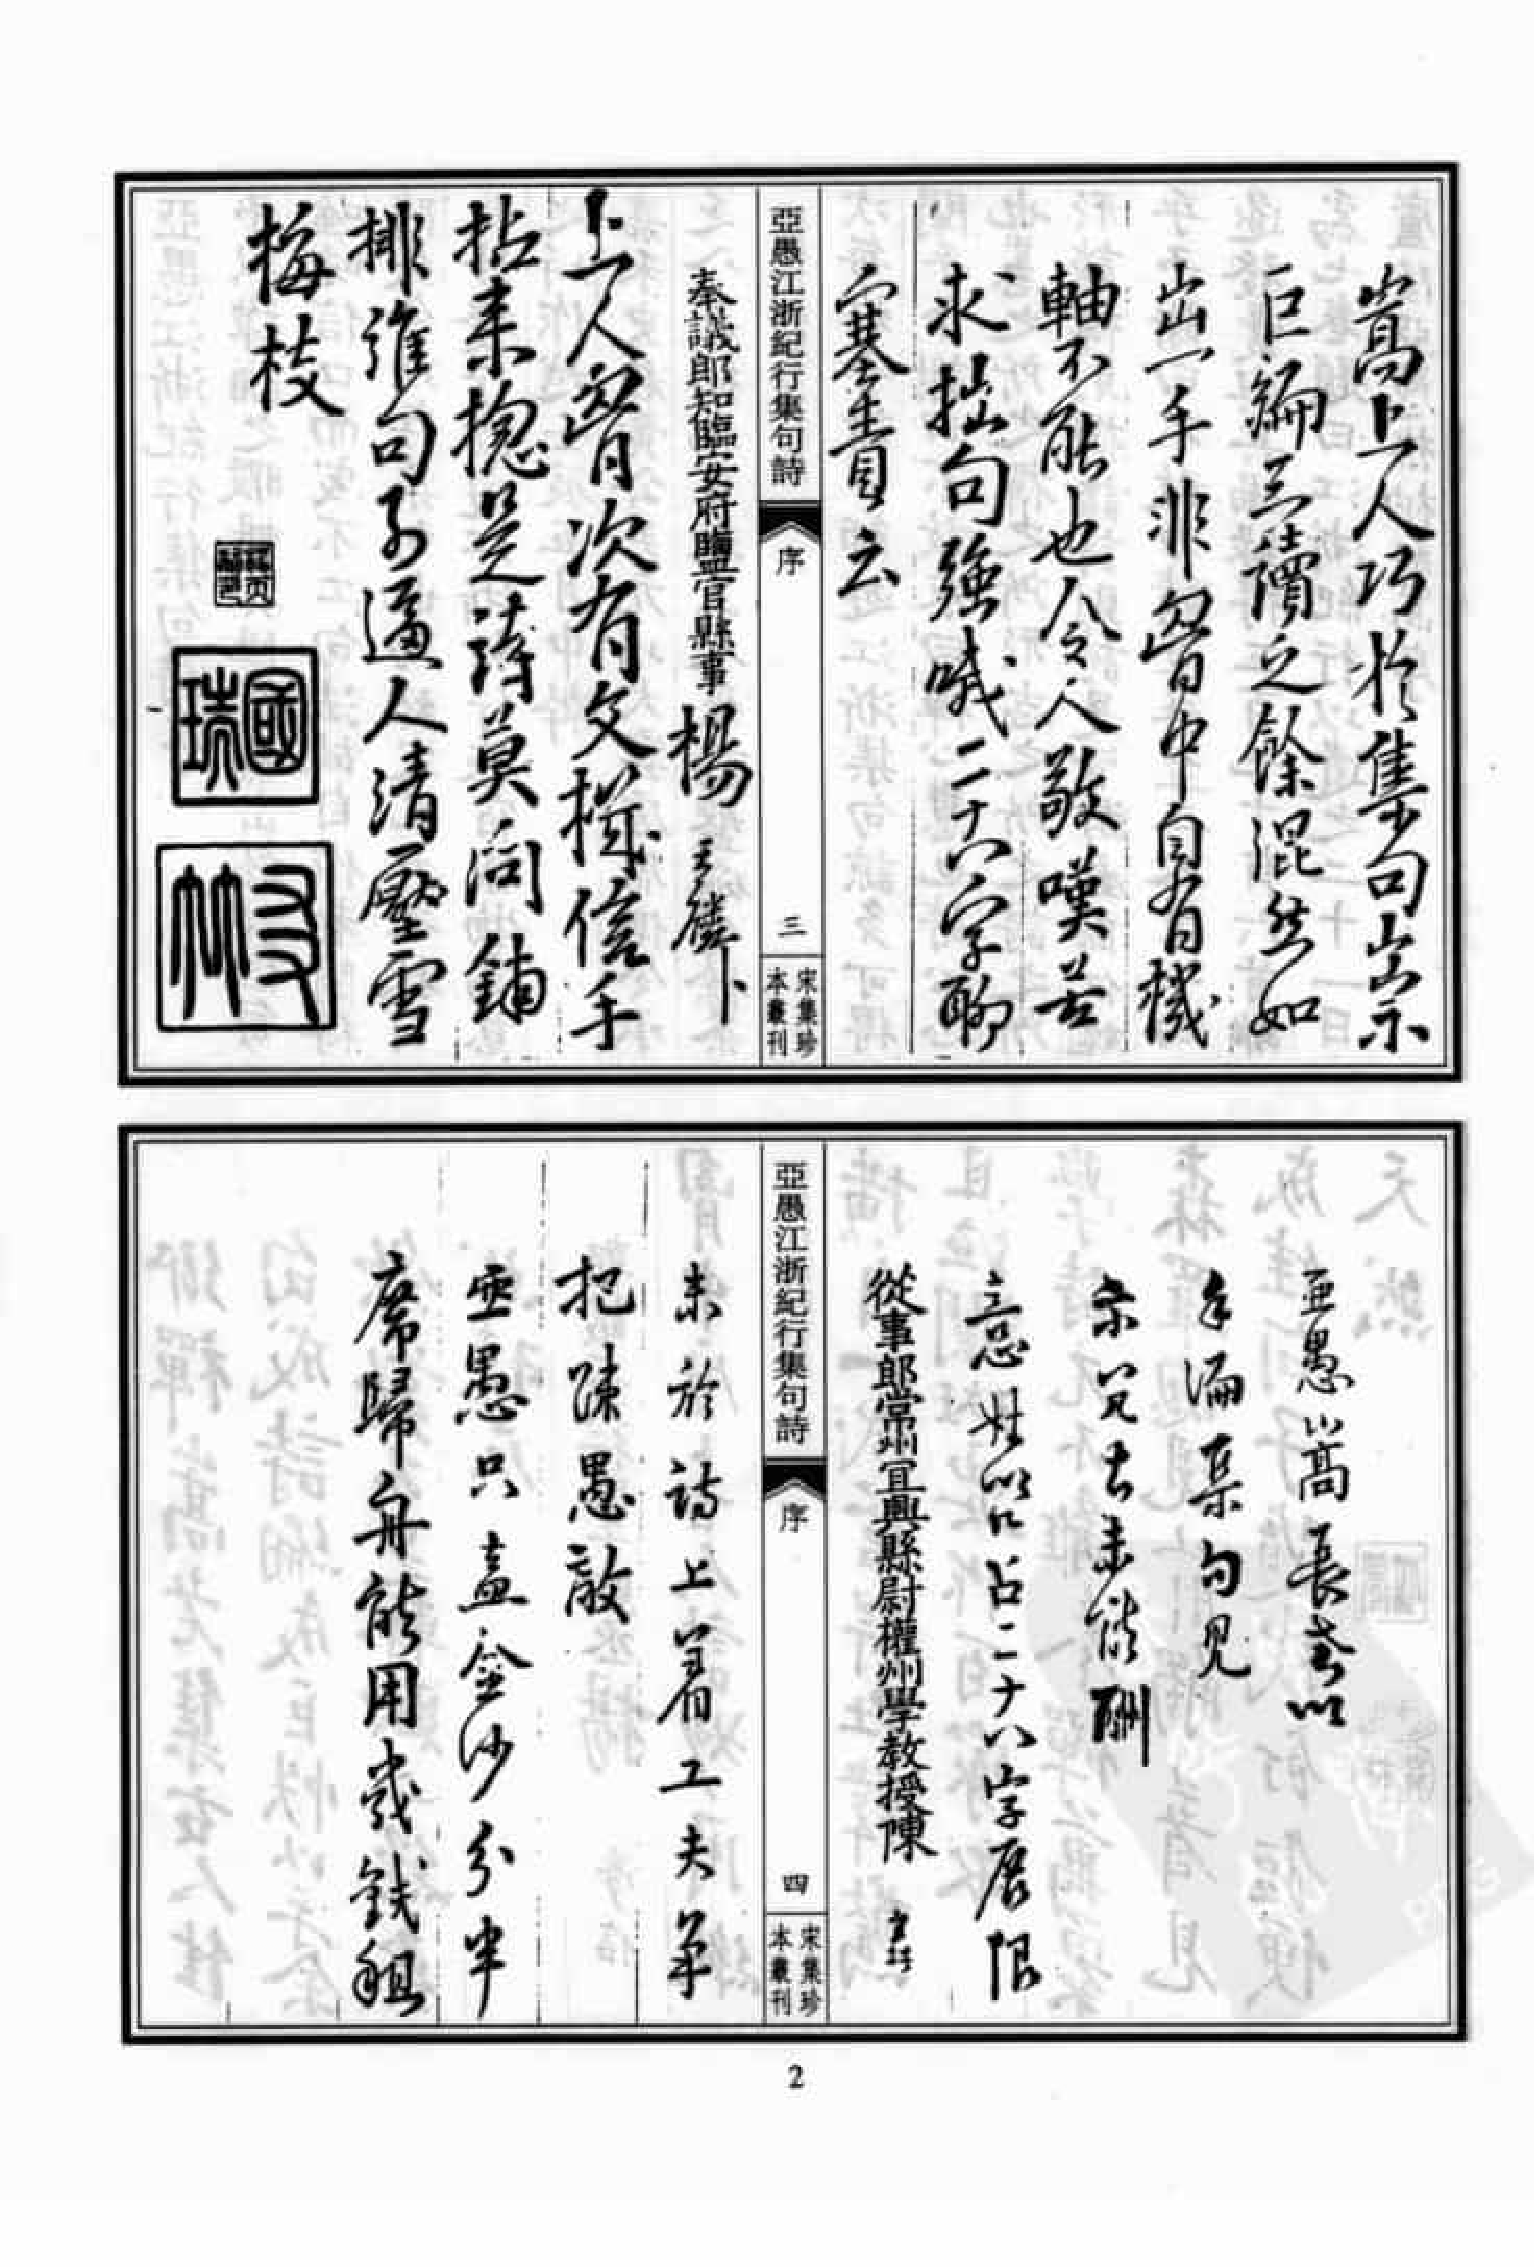 嵩上人巧於集句出示
巨編三讀之餘混然如
出一手非胷中自有機
軸不能也令人敬嘆苦
求拙句強哦二十八字聊
塞責云
亞愚江浙紀行集句詩
序
三
宋集珍
本叢刊
奉議郎知臨安府鹽官縣事楊
上人胷次有文機信手
拈来揔是詩莫向鋪
排詫句子逼人清壓雪
梅枝
國瑞
友竹
亞愚嵩長老以
集句見
未能酬
意姓以口占二十八字
從事郎常州宜興縣尉權州學教授陳
亞愚江浙紀行集句詩
序
四
宋集珍
本叢刊
未於詩上着工夫爭
把陳愚敵
亞愚只盍金沙分半
席歸舟能用幾錢租
2